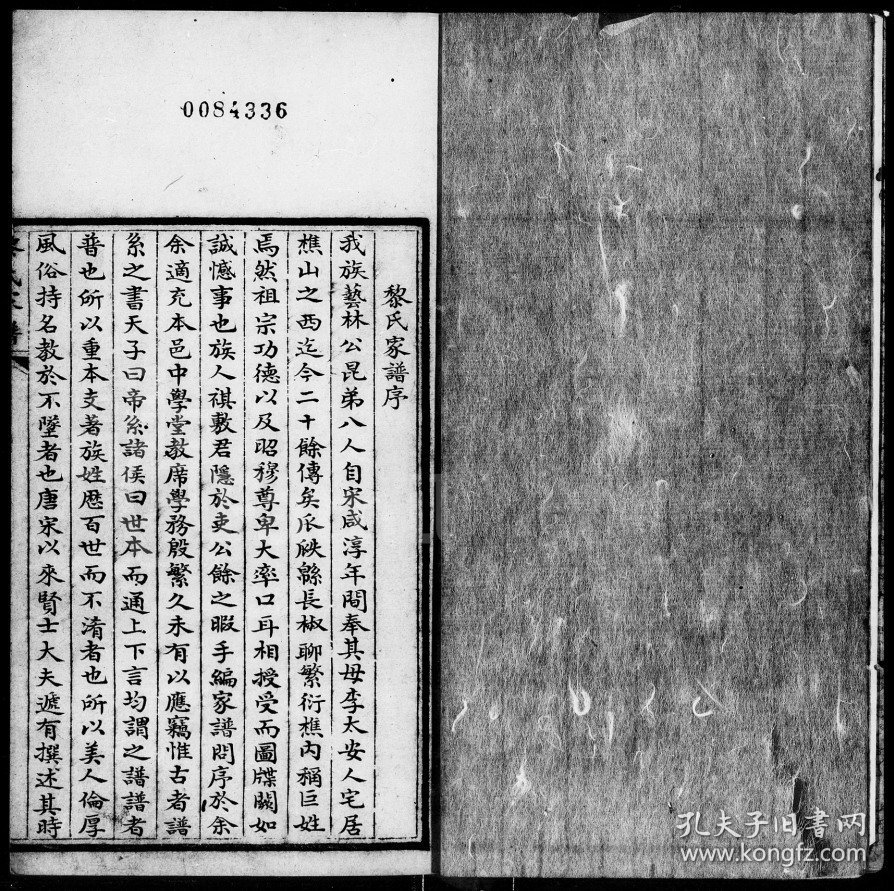 0084336
黎氏家譜序
我族藝林公昆弟八人自宋咸淳年間奉其母李太安人宅居
樵山之西迄今二十餘傳矣瓜瓞緜長椒聊繁衍樵內稱巨姓
焉然祖宗功德以及昭穆尊卑大率口耳相授受而圖牒闕如
誠憾事也族人祺敷君隱於吏公餘之暇手編家譜問序於余
余適充本邑中學堂教席學務殷繁久未有以應竊惟古者譜
系之書天子曰帝系諸侯曰世本而通上下言均謂之譜譜者
普也所以重本支著族姓歷百世而不淆者也所以美人倫厚
風俗持名教於不墜者也唐宋以來賢士大夫遞有撰述其時
氏家譜
孔夫子旧書网
www.kongfz.com